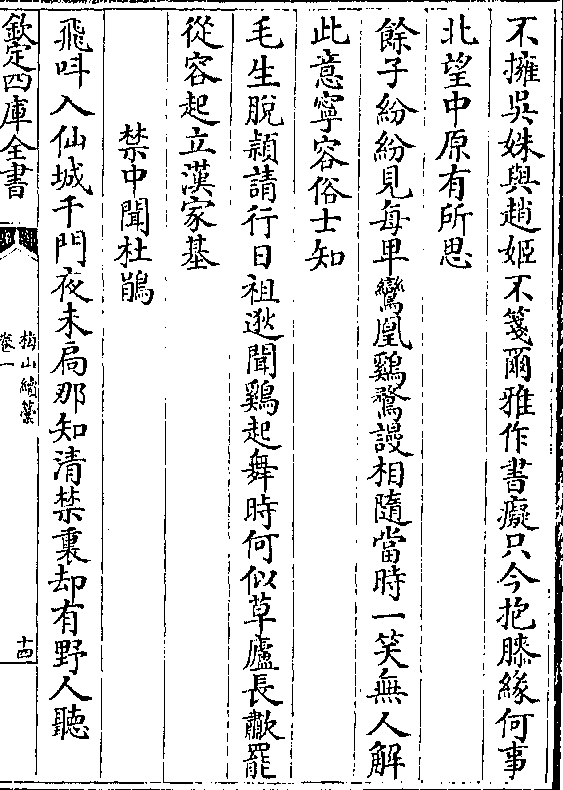 不擁吳姝與趙姬不箋爾雅作書癡只今抱膝緣何事
北望中原有所思
餘子紛紛見每卑鸞凰鷄鶩謾相隨當時一笑無人解
此意寧容俗士知
毛生脫穎請行日祖逖聞鷄起舞時何似草廬長歗罷
從容起立漢家基
禁中聞杜鵑
飛呌入仙城千門夜未扃那知清禁裏却有野人聽
欽定四庫全書
梅山續藁
卷一
十四